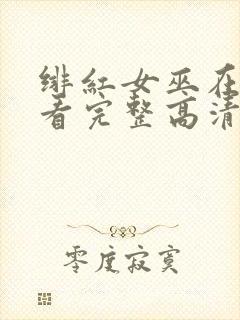 绯红女巫在
看完整高清
零度寂寞